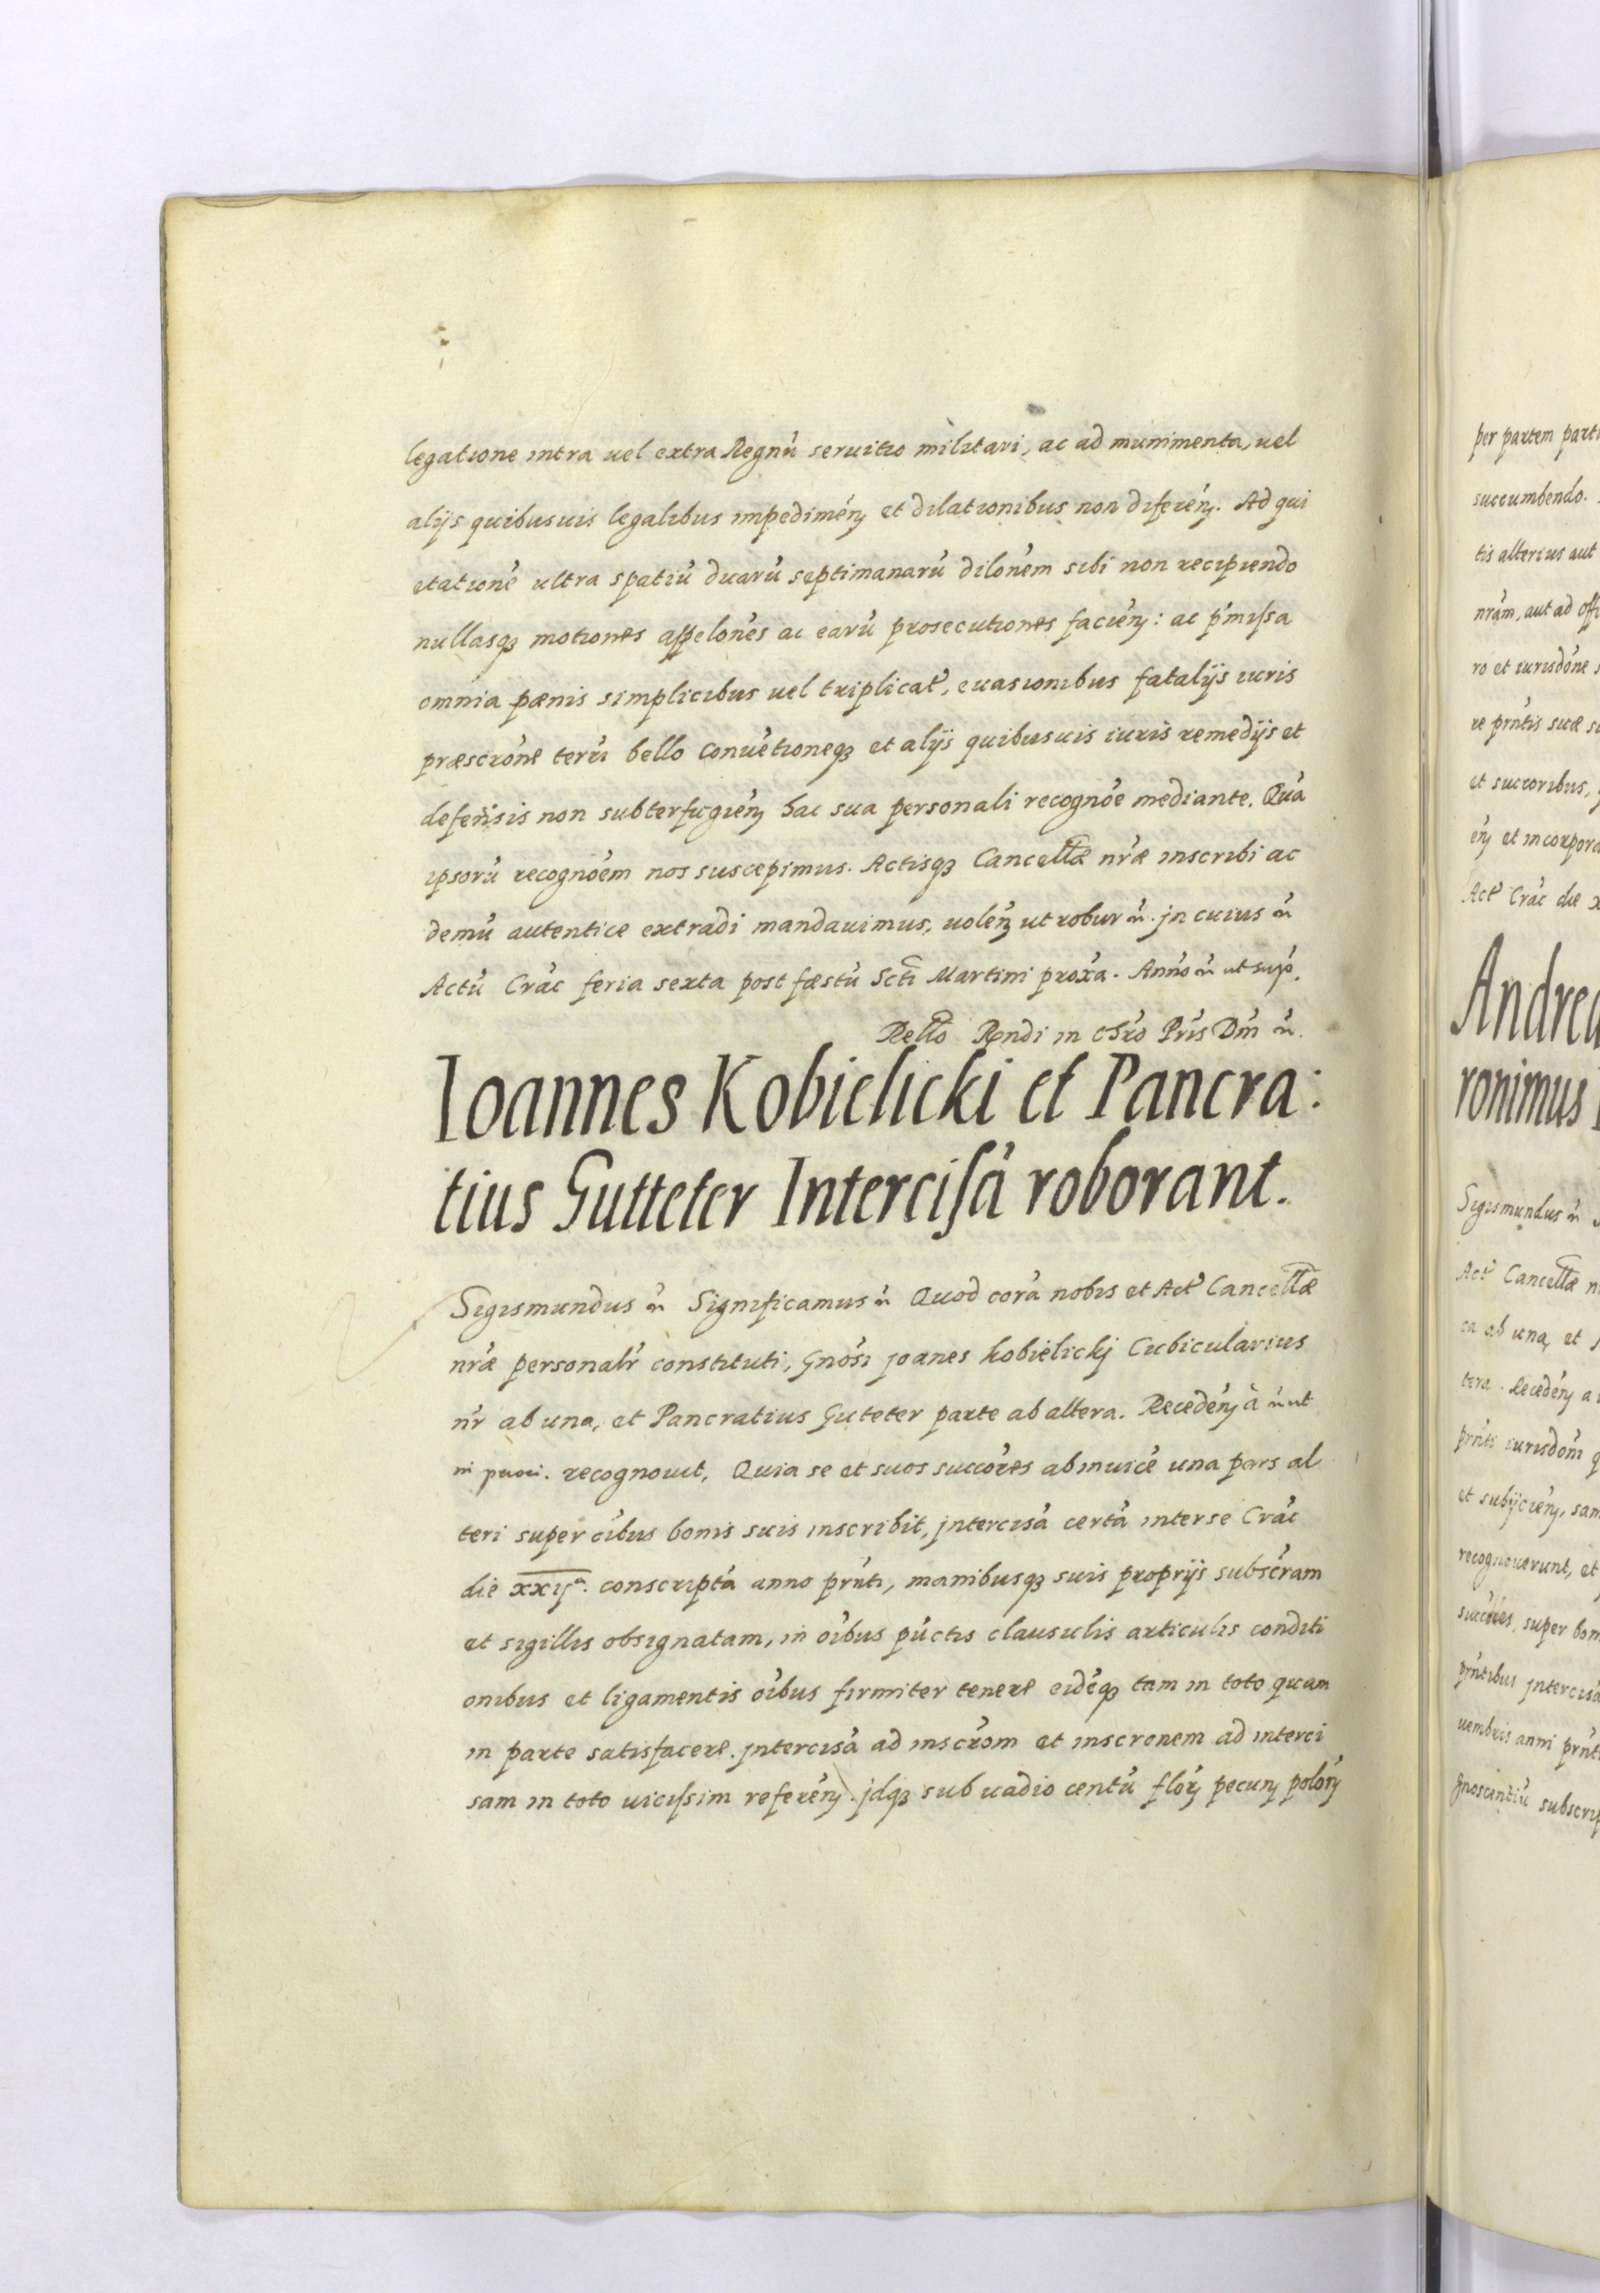 legatione intra uel extra Regnũ seruitio militari, ac ad munimenta, uel
alijs quibusuis legalibus impedimeń et dilationibus non difereń. Ad qui
etationẽ ultra spatiũ duarũ septimanarũ dilonẽm sibi non recipiendo
nullasqꝫ motiones appelonẽs ac earũ prosecutiones facień: ac pᷓmissa
omnia pænis simplicibus uel triplicat̃, euasionibus fatalijs iuris
præscrõne terrĩ bello conuẽtioneqꝫ et alijs quibusuis iuris remedijs et
defensis non subterfugień hac sua personali recognõe mediante. Quã
ipsorũ recognõem nos suscepimus. Actisqꝫ Cancellæ nrãe inscribi ac
demũ autentice extradi mandauimus, uoleń ut robur ñ. jn cuius ñ
Actũ Crac̃ feria sexta post fæstũ Sctĩ Martini proxã. Anño ñ ut sup̃.
Rello Rndi in chrõ Pris̃ Dm̃ ñ.
Ioannes Kobielicki et Pancra:
tius Gutteter Intercisã roborant.
Sigismundus ñ Significamus ñ Quod corã nobis et Act̃ Cancellæ
nrãe personalr̃ constituti, Gnõsi joanes Kobielickj Cubicularius
nr̃ ab una, et Pancratius Guteter parte ab altera. Recedeń à ñ ut
in recognouit, Quia se et suos succorẽs abinuicẽ una pars al
teri super oĩbus bonis suis inscribit, jntercisã certã inter se Crac̃
die xxijª. conscriptã anno prñti, manibusqꝫ suis proprijs subscr̃am
et sigillis obsignatam, in oĩbus pũctis clausulis articulis conditi
onibus et ligamentis oĩbus firmiter tenere eidẽqꝫ tam in toto quam
in parte satisfacere. jntercisã ad inscrõm et inscronem ad interci
sam in toto uicissim refereń. jdqꝫ sub uadio centũ flor̃ pecuń poloń
per partem parti
succumbendo.
tis alterius aut
nrãm, aut ad offi
ro et iurisdõne
re prñtis suæ
et succoribus,
eń et incorpora
Act̃ Crac̃ die x
Andrea
ronimus
Sigismundus ñ
Act̃ Cancellæ n
ca ab una, et
tera. Recedeń a
prñti iurisdõni q
et subijcień, sam
recognouerunt, et
succores, super bon
prñtibus jntercisã
uembris anni prñti
gnoscentiũ subscrip